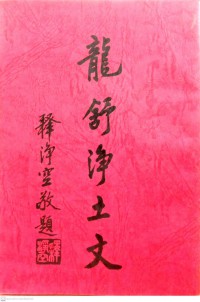 龍舒淨土文
釋淨空敬題